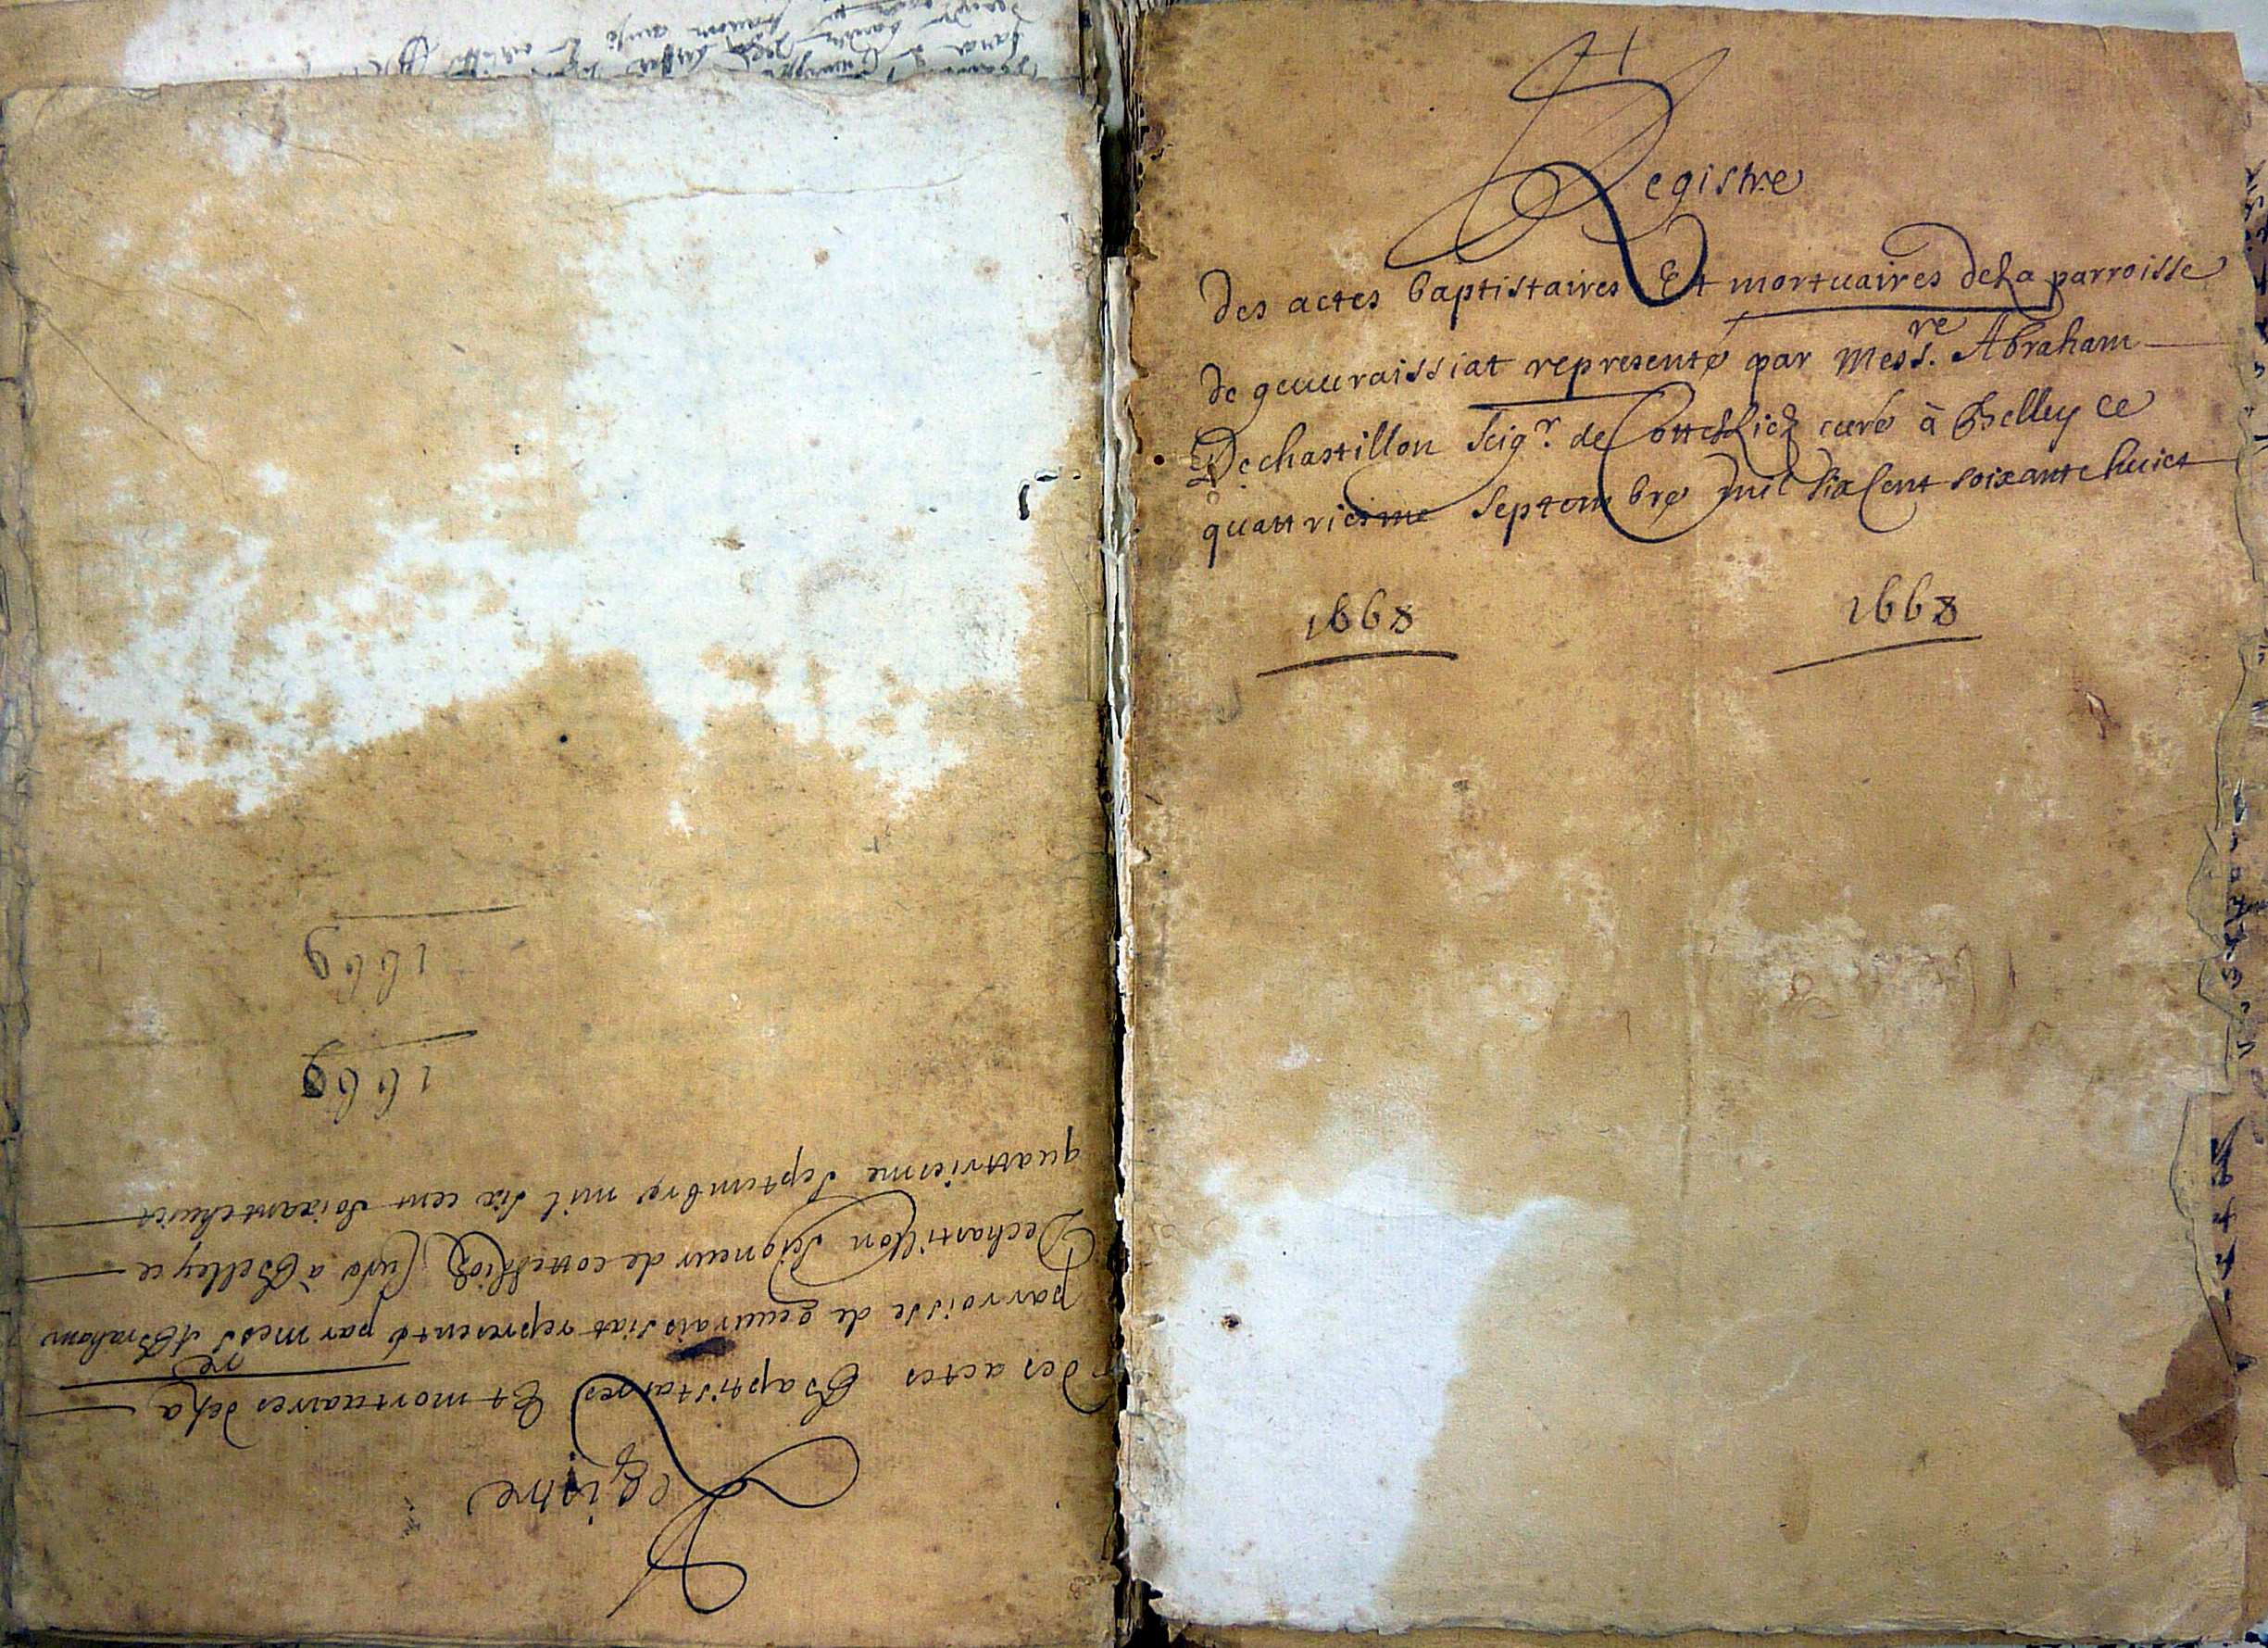 Registre
Des actes baptistaires Et mortuaires deLa parroisse
De geuuraissiat representé par Messre. Abraham
Dechastillon Seigr. de curé à Belley ce
quattriesme Septembre mil Six Cent soixante huict
1668 1668
Registre
Des actes Baptistaires Et mortuaires deLa
parroisse de geuuraissiat representé par Messre Abraham
Dechastillon Seigneur de Curé à Belley ce
quattriesme Septembre mil Six cent Soixante huict
1669
1669